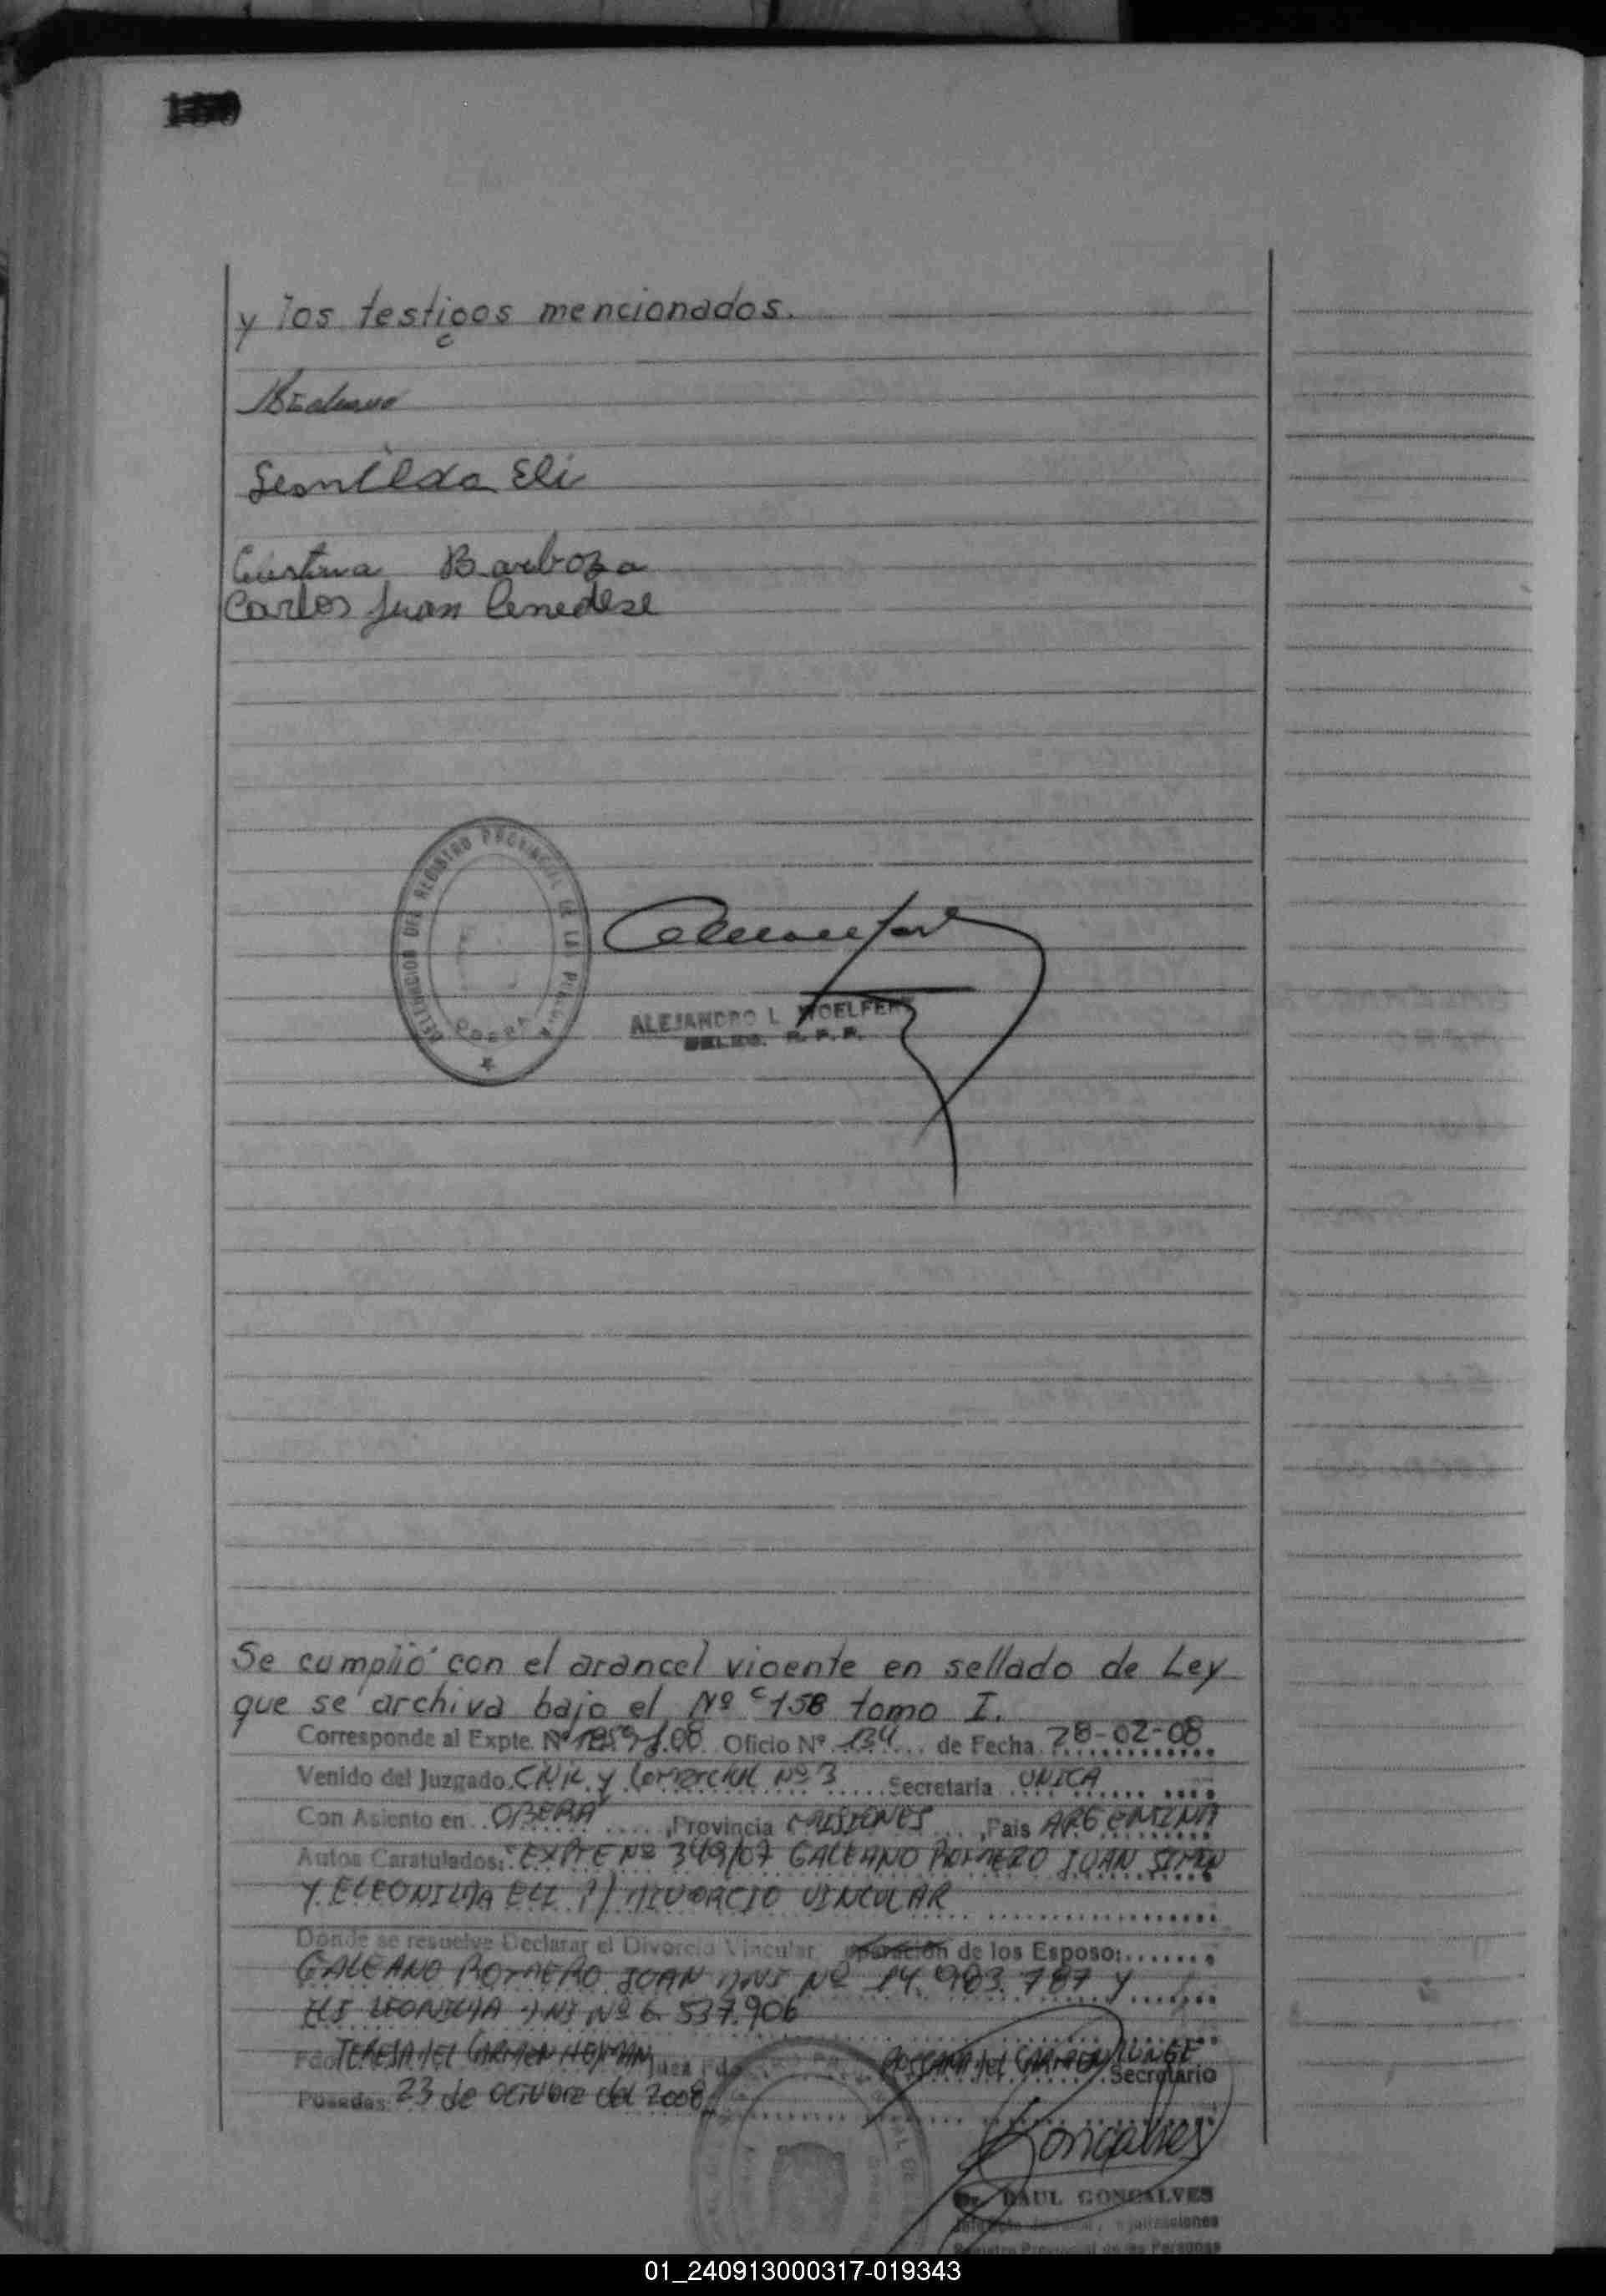 y los testigos mencionados.
Leonilda Eli
Cristina Barboza
Carlos Juan Cenedese
DELEGACION DEL REGISTRO PROVINCIAL DE LAS PERS.
OBERA
ALEJANDRO L. WOELFERT
DELEG. R. P. P.
Se cumplió con el arancel vigente en sellado de Ley
que se archiva bajo el Nº 158 tomo I.
Corresponde al Expte. Nº 08 Oficio Nº 134 de Fecha 28-02-08
Venido del Juzgado Civil y Comercial Nº 3 Secretaria UNICA
Con Asiento en OBERA ,Provincia MISIONES ,Pais ARGENTINA
Autos Caratulados: "EXPTE Nº 349/07 GALEANO ROMERO JUAN SIMON
Y ELEONILDA ELI S/ DIVORCIO VINCULAR
Donde se resuelve Declarar el Divorcio Vincular, de los Esposo:
GALEANO ROMERO JUAN DNI Nº 14.983.787 Y
ELI LEONILDA DNI Nº 6.537.906
Fdo TERESA del CARMEN Juez Fdo ROSSANA del CARMEN Secretario
Posadas 23 de octubre del 2008
Goncalves
Dr. RAUL GONCALVES
Registro Provincial de las Personas
01_240913000317-019343